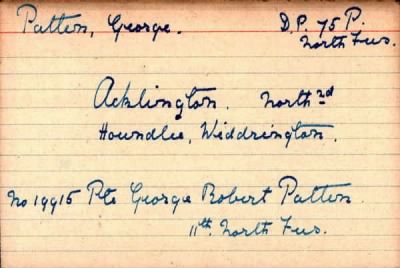 Patten, George. D.P. 75 P.
North Fus.
Acklington. North nd
Houndlee, Widdrington.
No 19915 Pte George Robert Patten.
11th. North Fus.